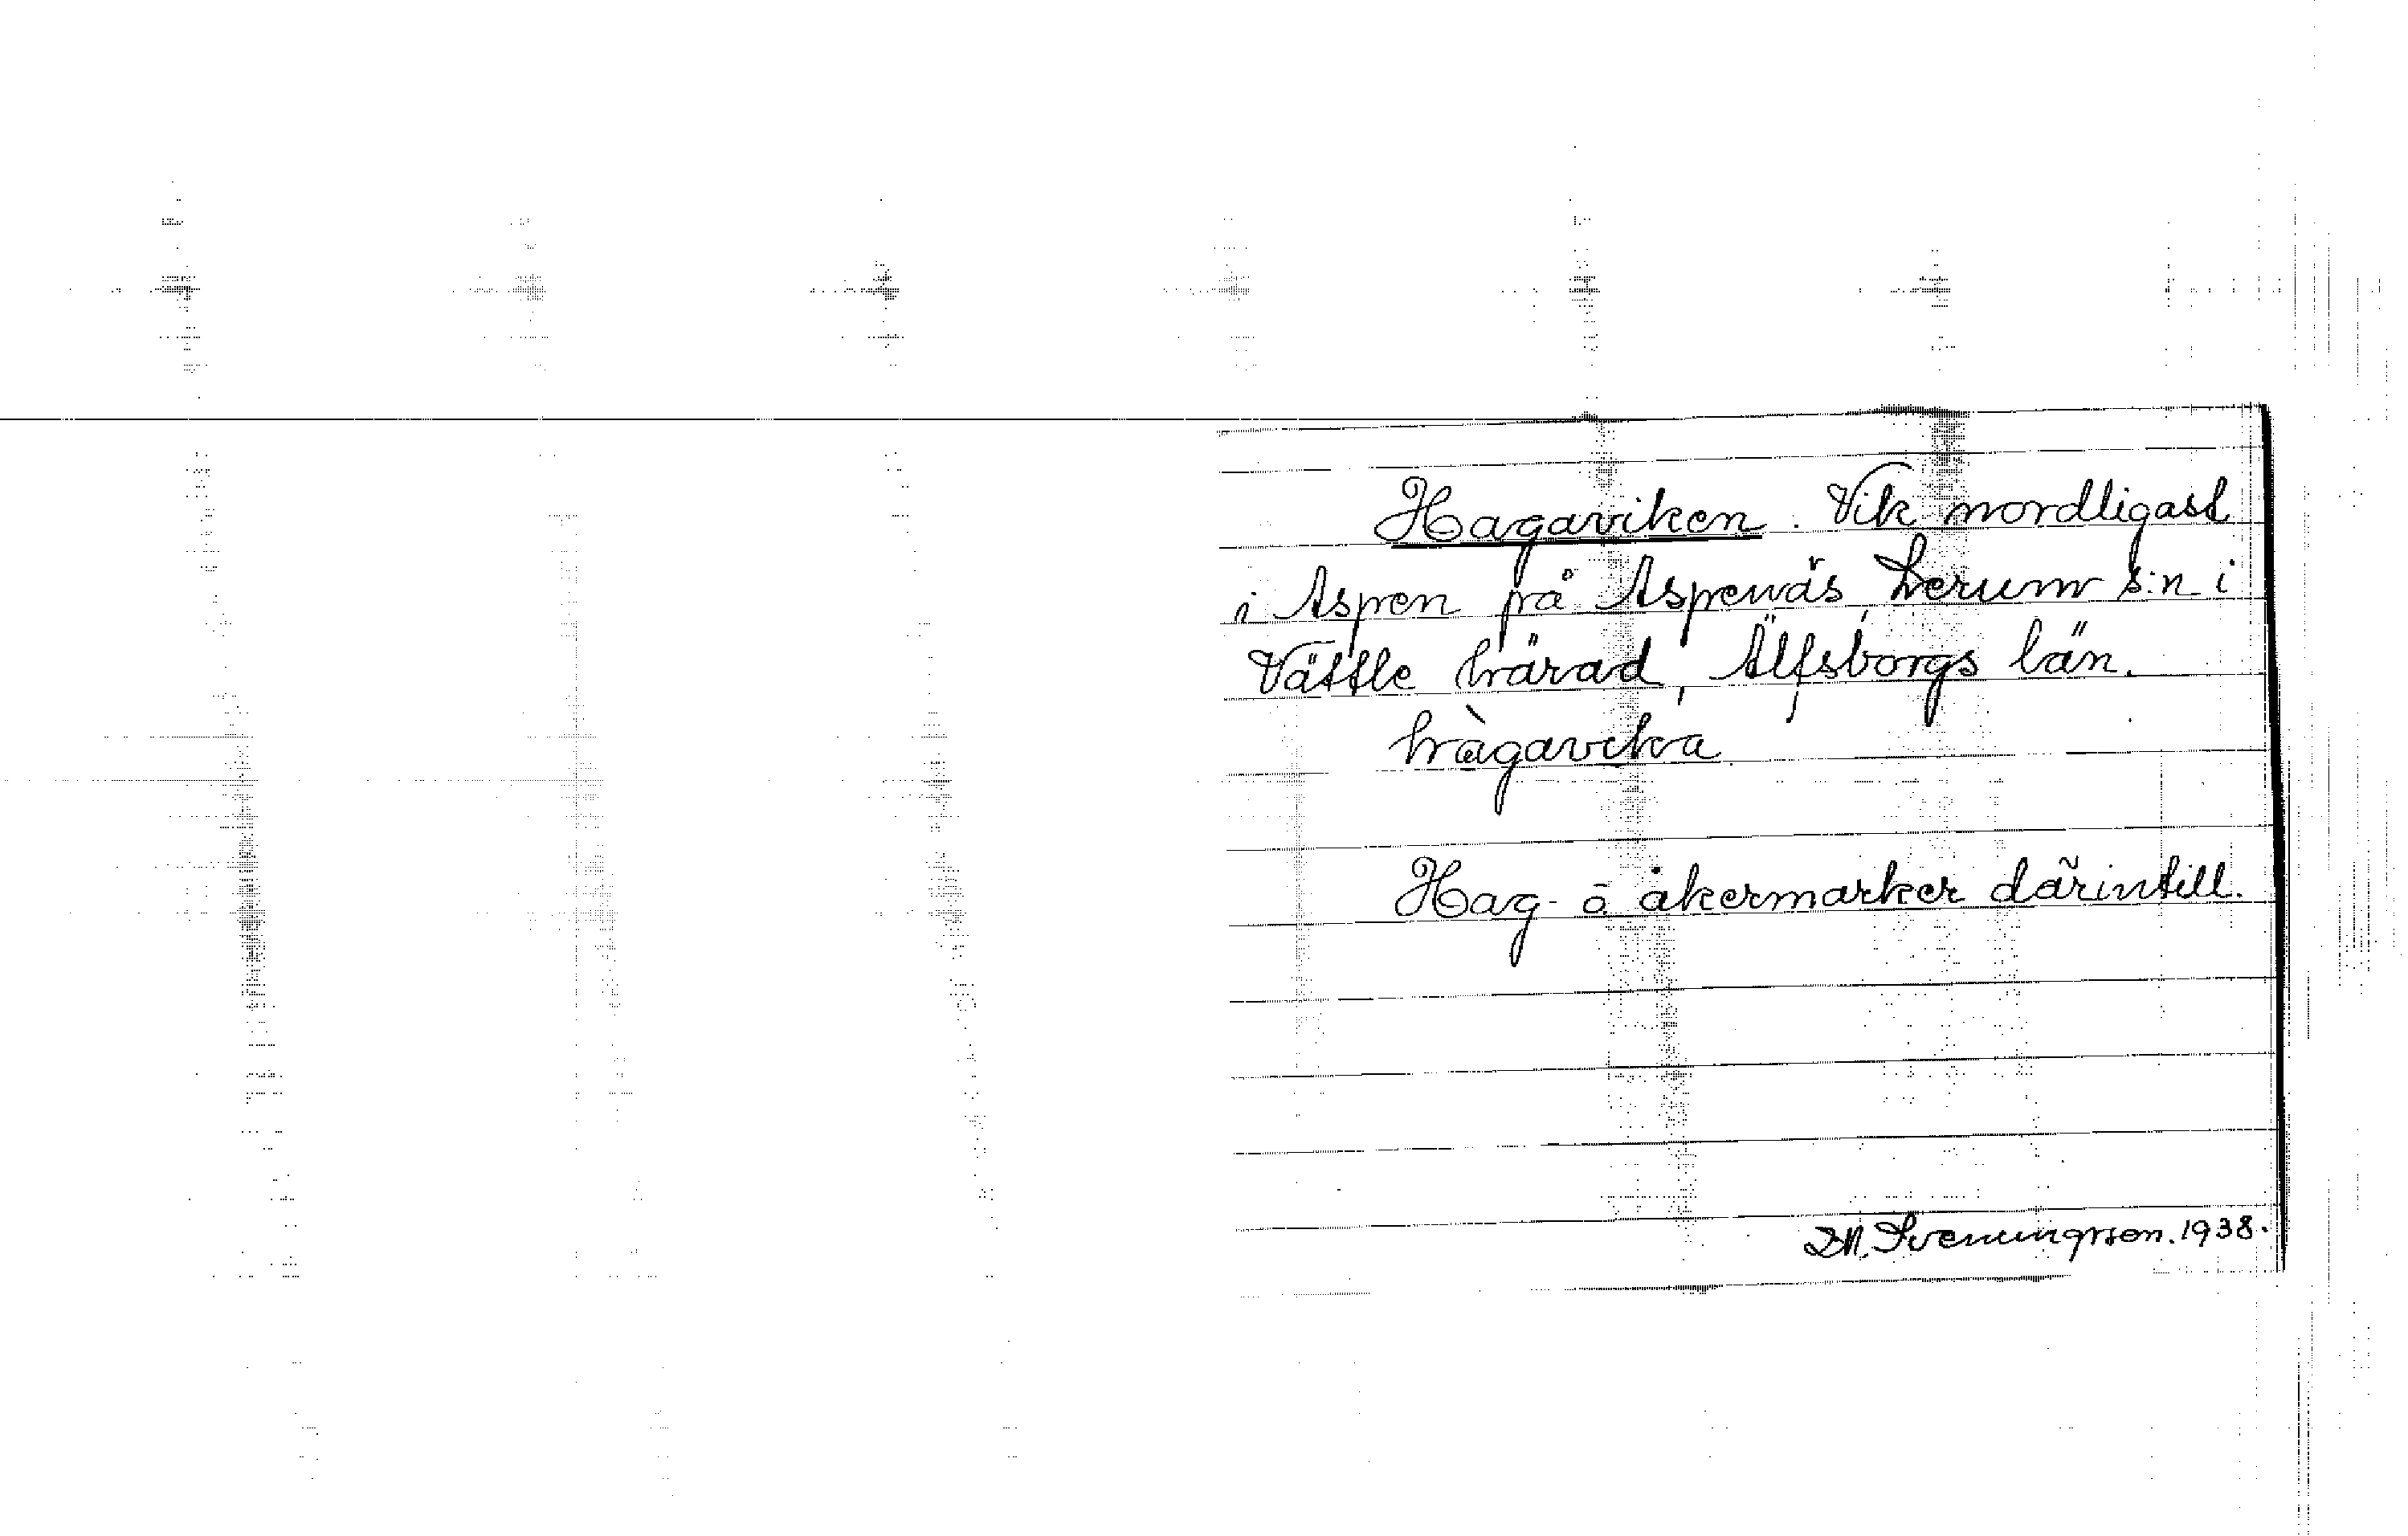 Hagaviken. Vik nordligast
i Aspen på Aspenäs, Lerum s:n i
Vättle härad, Älfsborgs län.
hàgavika
Hag- o. åkermarker därintill.
Svenungsson. 1938.